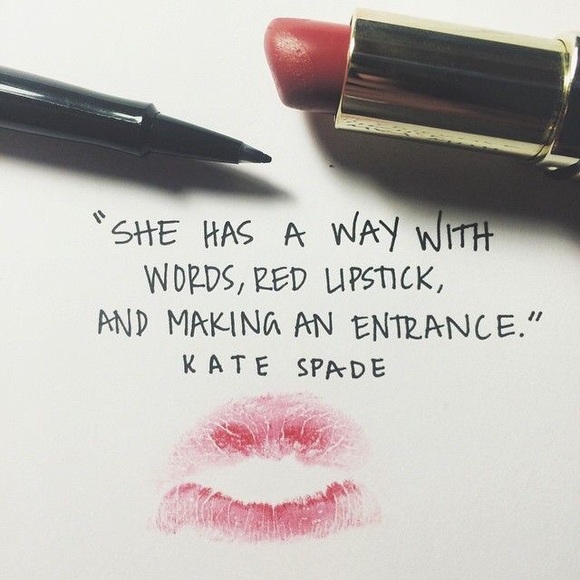 "SHE HAS A WAY WITH
WORDS, RED LIPSTICK,
AND MAKING AN ENTRANCE."
KATE SPADE